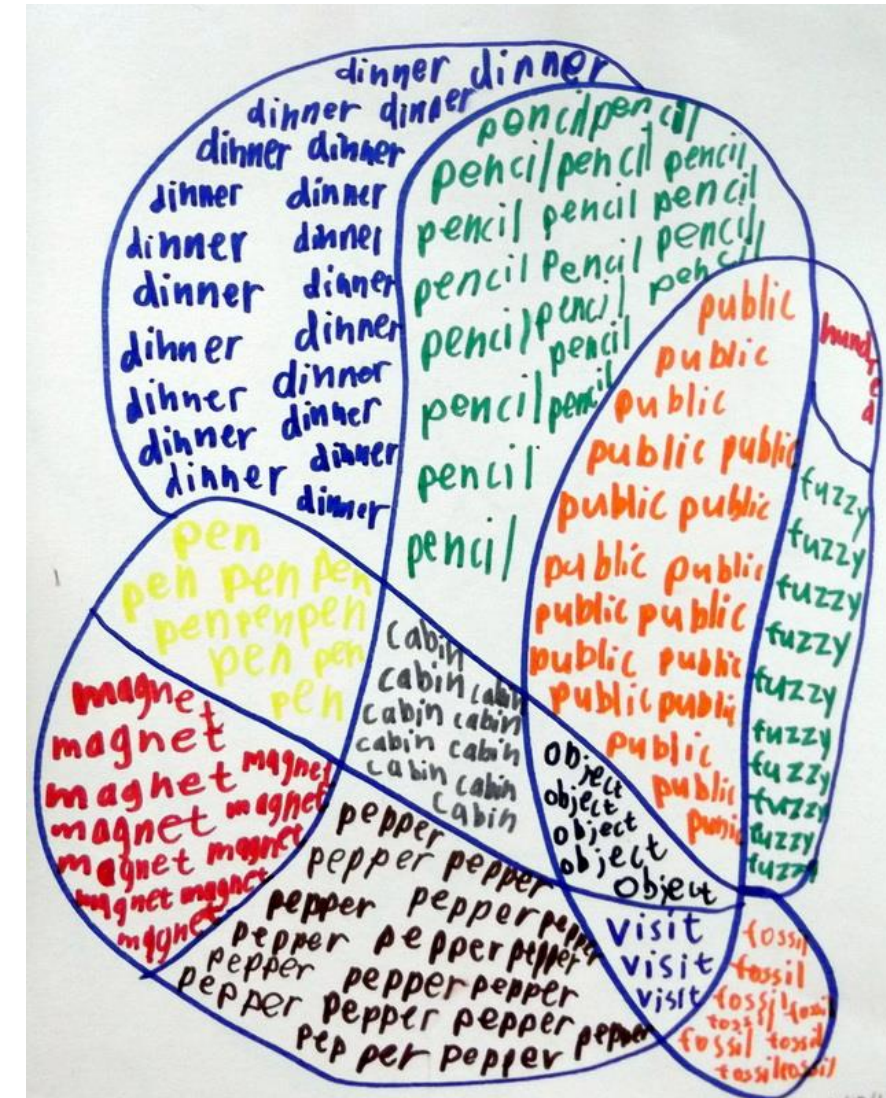 dinner dinner
dinner dinner
dinner dinner
dinner dinner
dinner dinner
dinner dinner
dinner dinner
dinner dinner
dinner dinner
dinner dinner
dinner
poncil pencil
pencil pencil pencil
pencil pencil pencil
pencil Pencil pencil
pencil pencil pencil
pencil
pencil pencil
pencil
pencil
hundred
public
public
public
public public
public public
public public
public public
public public
public public
public
public
public
fuzzy
fuzzy
fuzzy
fuzzy
fuzzy
fuzzy
fuzzy
fuzzy
fuzzy
fuzzy
pen
pen pen pen
pen pen pen
pen pen
pen
cabin
cabin cabin
cabin cabin
cabin cabin
cabin cabin
cabin
object
object
object
object
object
magnet
magnet
magnet magnet
magnet magnet
magnet magnet
magnet magnet
magnet
pepper
pepper pepper
pepper pepper pepper
pepper pepper pepper
pepper pepper pepper
pepper pepper pepper pepper
pep per pepper
visit
visit
visit
fossil
fossil
fossil fossil
fossil
fossil fossil
fossil fossil